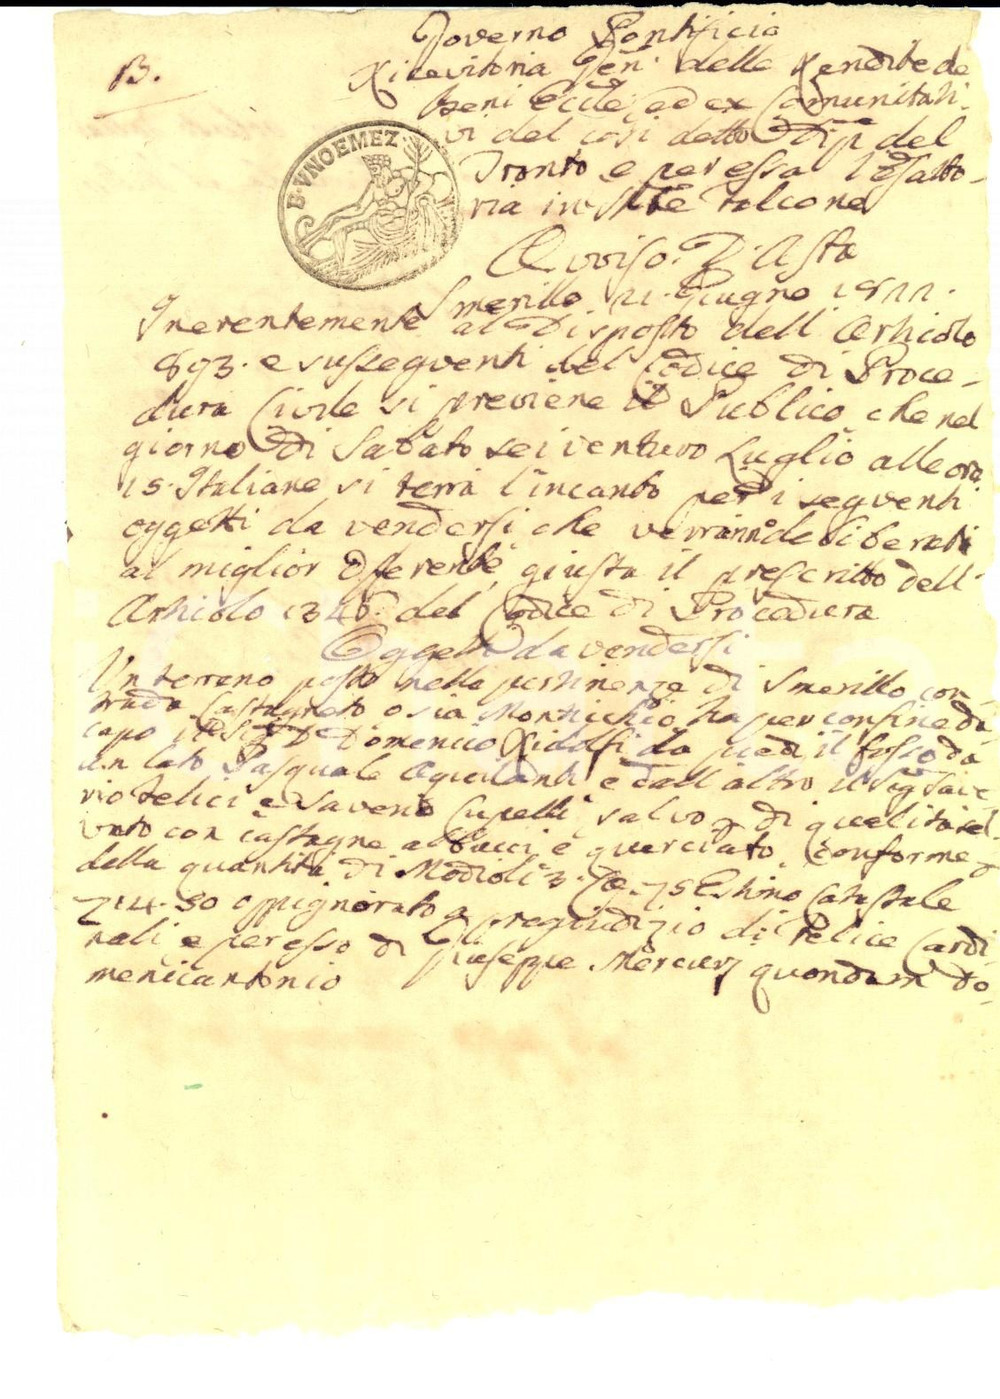 B.
Governo Pontificio
Ricevitoria Gen. delle Rendite de
Beni Eccle. ed ex Comunitati-
vi del così detto Dip. del
Tronto e per essa l'Esatto-
ria in Mte Falcone
B. UNOEMEZ.
Avviso D'Asta
Smerillo 21. Giugno 1811.
Inerentemente al Disposto dell' Articolo
693. e susseguenti del Codice di Proce-
dura Civile si previene il Publico che nel
giorno di Sabato sei venturo Luglio alle ore
15. Italiane si terrà l'incanto per i seguenti
oggetti da vendersi che verranno deliberati
al miglior Offerente, giusta il prescritto dell'
Articolo del Codice di Procedura
Oggetti da vendersi
Un terreno posto nelle pertinenze di Smerillo con-
trada Castagneto o sia Monticchio, ha per confine da
capo Domenico Ridolfi da piedi il fosso da
un lato Pasquale Aquilanti e dall' altro il Sig. Save-
rio Felici e Saverio Cupelli salvo di qualità sel-
vato con castagne e querciato, conforme
della quantità di Modioli 3. Estimo Catastale
714. 50 oppignorato a pregiudizio di Felice Cardi-
nali e per esso di Giuseppe Mercuri quondam Do-
menicantonio